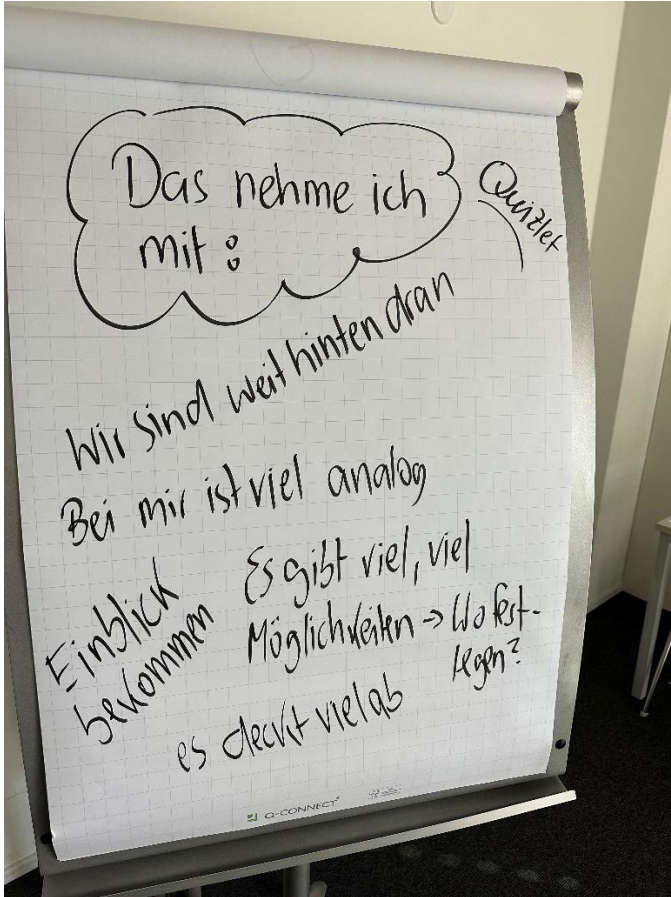 Das nehme ich
mit:
Quizlet
Wir sind weit hinten dran
Bei mir ist viel analog
Einblick
bekommen
Es gibt viel, viel
Möglichkeiten → Wo fest-
legen?
es deckt viel ab
Q-CONNECT®